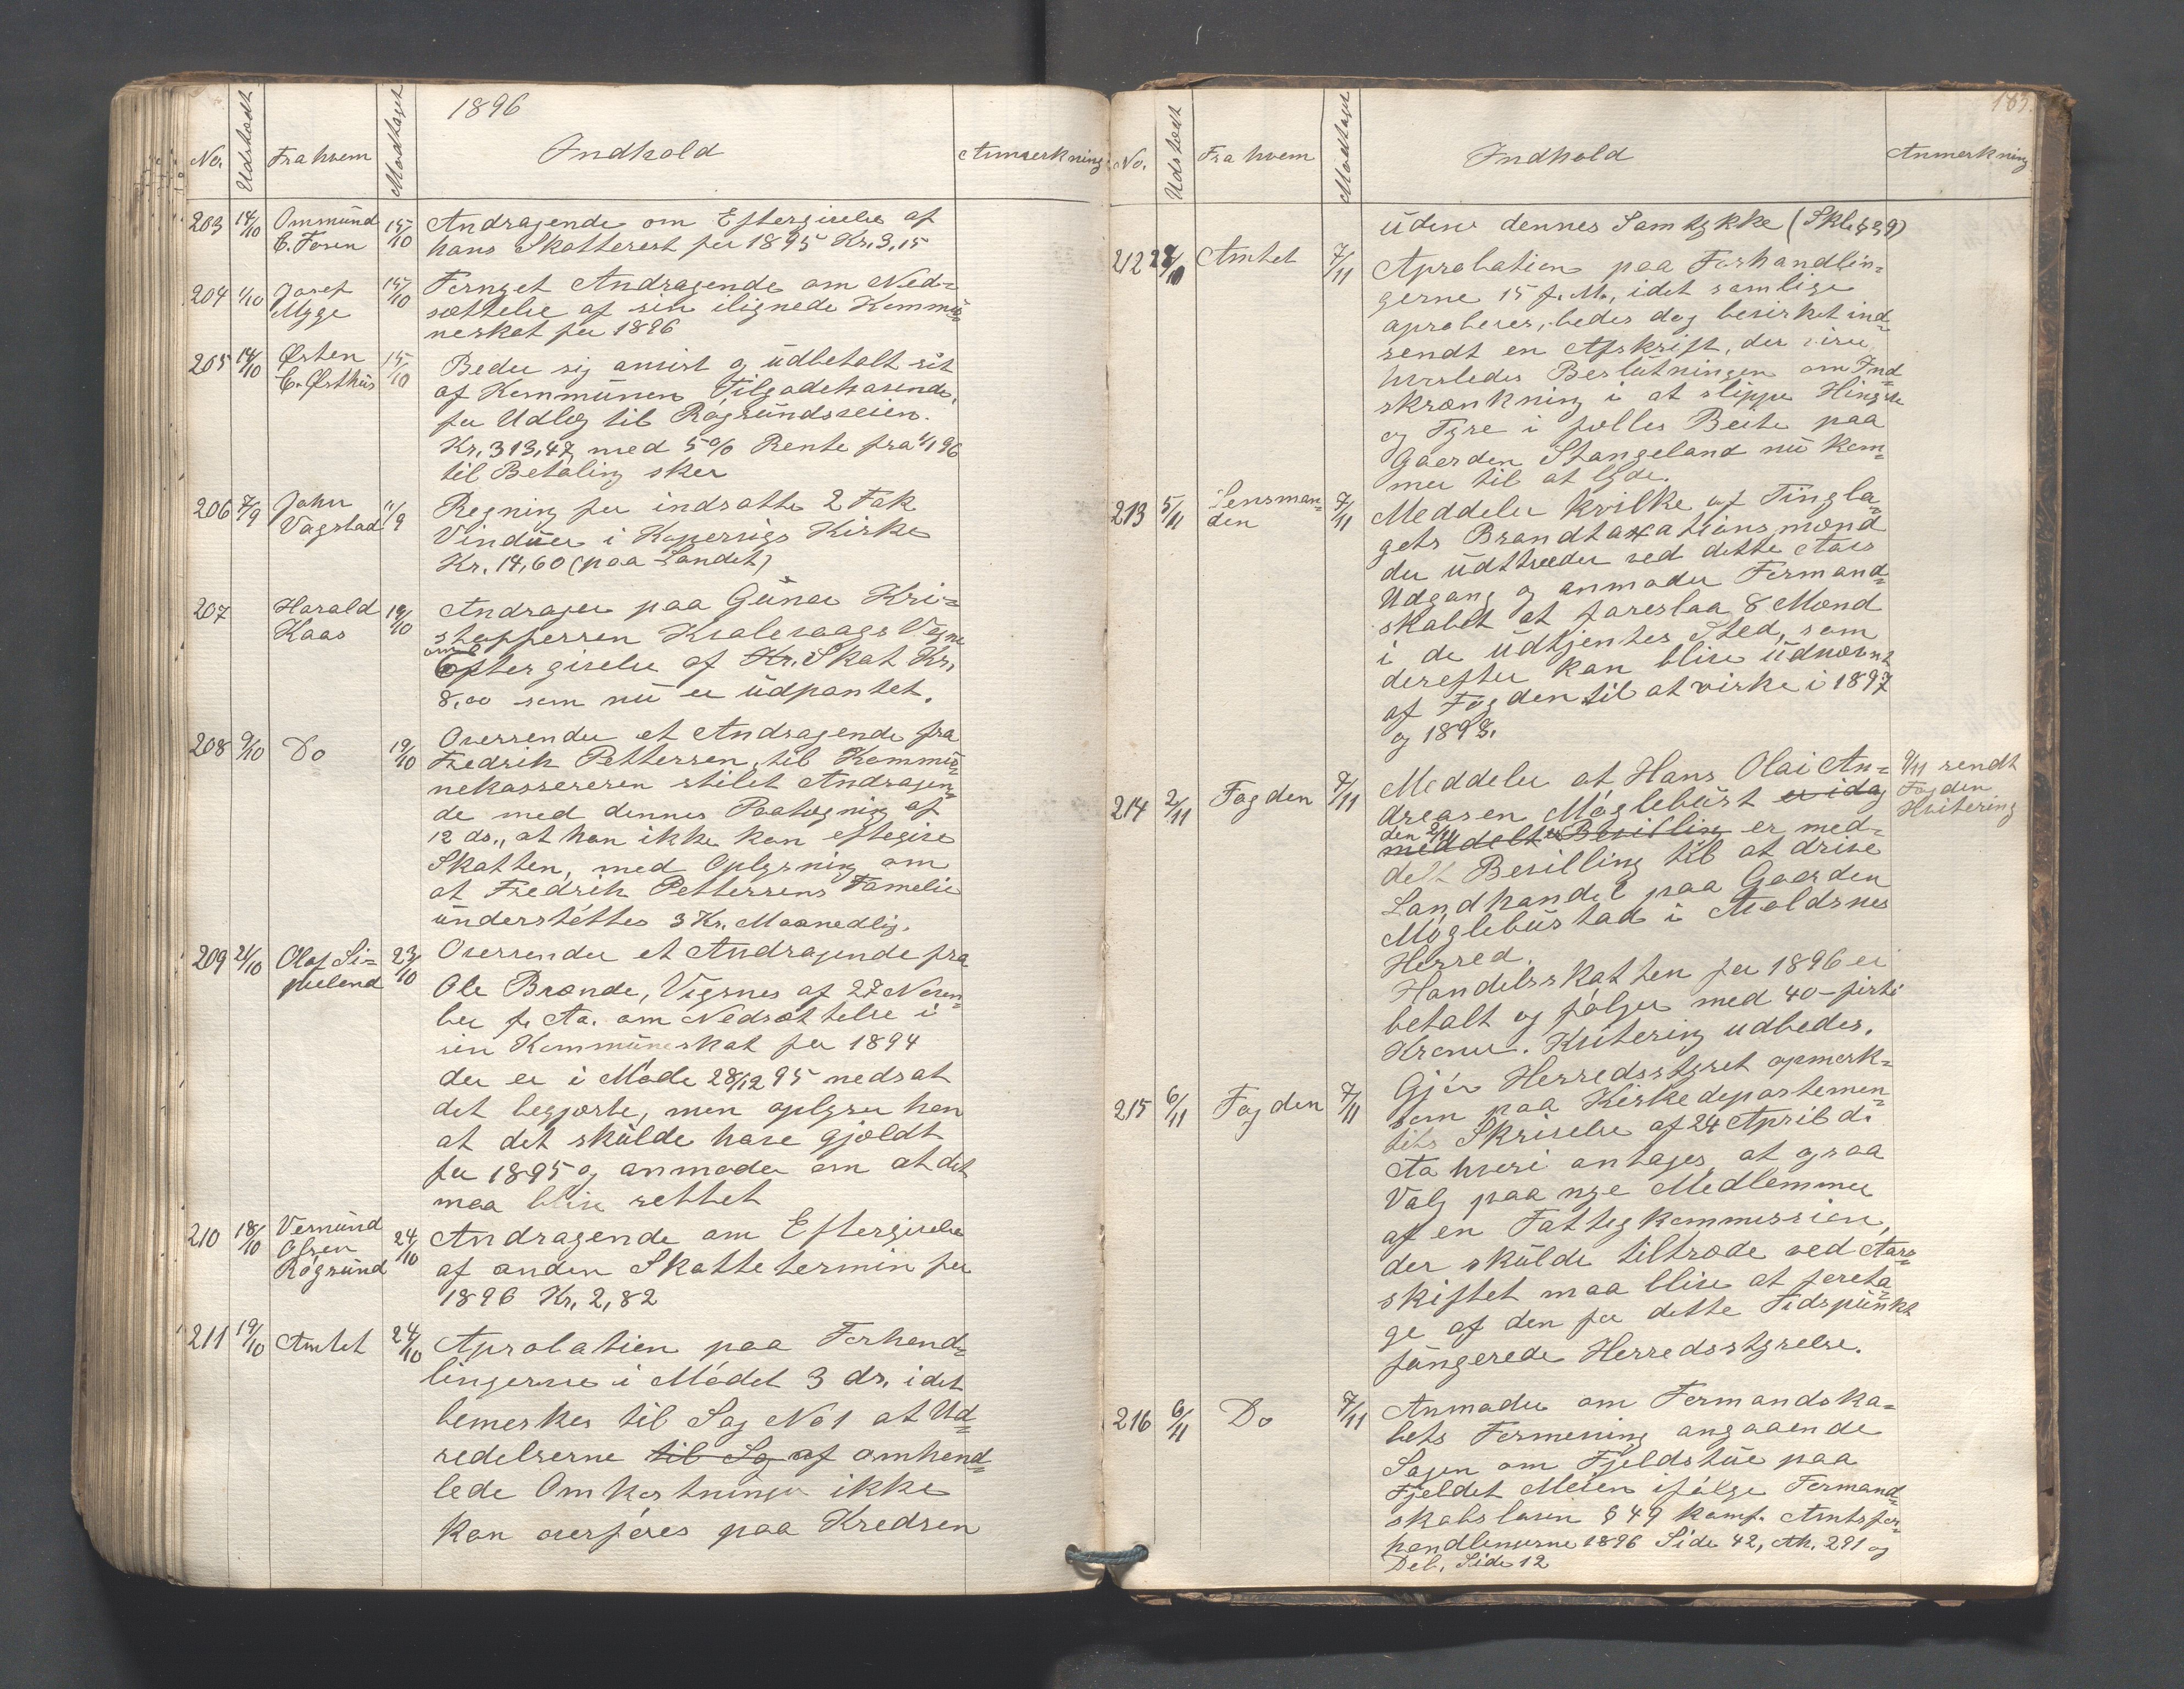 1896
No. Udstædt Fra hvem Modtaget Indhold Anmerkning
203 14/10 Ommund E. Foren 15/10 Andragende om Eftergivelse af
hans Skatterest for 1895 Kr. 3,15
204 1/10 Josef Myge 15/10 Fornyet Andragende om Ned=
sættelse af sin ilignede Kommu=
neskat for 1896
205 14/10 Østen E. Østhus 15/10 Beder sig anvist og udbetalt sit
af Kommunen Tilgodehavende,
for Udlæg til Røgsundsveien.
Kr. 313,47 med 5% Rente fra 1/1 96
til Betaling sker
206 7/9 John Vagstad 11/9 Regning for indsatte 2 Fak
Vinduer i Kopervigs Kirke
Kr. 14,60 (paa Landet)
207 Harald Kaas 19/10 Andrager paa Gunar Kri=
stoffersen Kvalevaags Vegne
om
Eftergivelse af Kr. Skat Kr.
8,00 som nu er udpantet.
208 9/10 Do 19/10 Oversender et Andragende fra
Fredrik Pettersen til Kommu=
nekassereren stilet Andragen=
de med dennes Paategning af
12 ds., at han ikke kan eftegive
Skatten, med Oplysning om
at Fredrik Pettersens Famelie
understøttes 3 Kr. Maanedlig.
209 21/10 Olaf Si= 23/10 Oversender et Andragende fra
Ole Brænde, Vigsnes af 27 Novem=
ber f. Aa. om Nedsættelse i
sin Kommuneskat for 1894
der er i Møde 28/12 95 nedsat
det begjærte, men oplyser han
at det skulde have gjældt
for 1895 og anmoder om at det
maa blive rettet
210 18/10 Vermund Olsen Røgsund 24/10 Andragende om Eftergivelse
af anden Skattetermin for
1896 Kr. 2,82
211 19/10 Amtet 24/10 Aprobation paa Forhand=
lingerne i Mødet 3 ds. idet
bemerkes til Sag No 1 at Ud=
redelserne til Sag af omhend=
lede Omkostninger ikke
kan overføres paa Kredsen
183.
No. Udstædt Fra hvem Modtaget Indhold Anmerkning
uden dennes Samtykke (Skl. § 39)
212 27/10 Amtet 7/11 Aprobation paa Forhandlin=
gerne 15 f. M., idet samlige
aproberes, bedes dog bevirket ind=
sendt en Afskrift, der viser
hvorledes Beslutningen om Ind=
skrænkning i at slippe Hingste
og Tyre i fælles Beite paa
Gaarden Stangeland nu kom=
mer til at lyde.
213 5/11 Lensman= den 7/11 Meddeler hvilke af Tingla=
gets Brandtaxationsmænd
der udtræder ved dette Aars
Udgang og anmoder Formand=
skabet at foreslaa 8 Mænd
i de udtjentes Sted, som
derefter kan blive udnævnt
af Fogden til at virke i 1897
og 1898.
214 2/11 Fogden 7/11 Meddeler at Hans Olai An=
dreasen Møglebust er idag
den 2/11
meddelt Bevilling er med=
delt Bevilling til at drive
Landhandel paa Gaarden
Møglebustad i Moldsnes
Herred.
Handelsskatten for 1896 er
betalt og følger med 40 - firti
Kroner. Kvitering udbedes.
9/11 sendt
Fogden
Kvitering
215 6/11 Fogden 7/11 Gjør Herredsstyret opmerk=
som paa Kirkedepartemen=
tets Skrivelse af 24 April d.
Aa hvori antages at ogsaa
Valg paa nye Medlemmer
af en Fattigkommission,
der skulde tiltræde ved Aars=
skiftet maa blive at foreta=
ge af den for dette Tidspunkt
fungerede Herredsstyrelse.
216 6/11 Do 7/11 Anmoder om Formandska=
bets Formening angaaende
Sagen om Fjeldstue paa
Fjeldet Meien ifølge Formand=
skabsloven § 49 komf. Amtsfor=
handlingerne 1896 Side 42, Ak. 291 og
Deb. Side 12